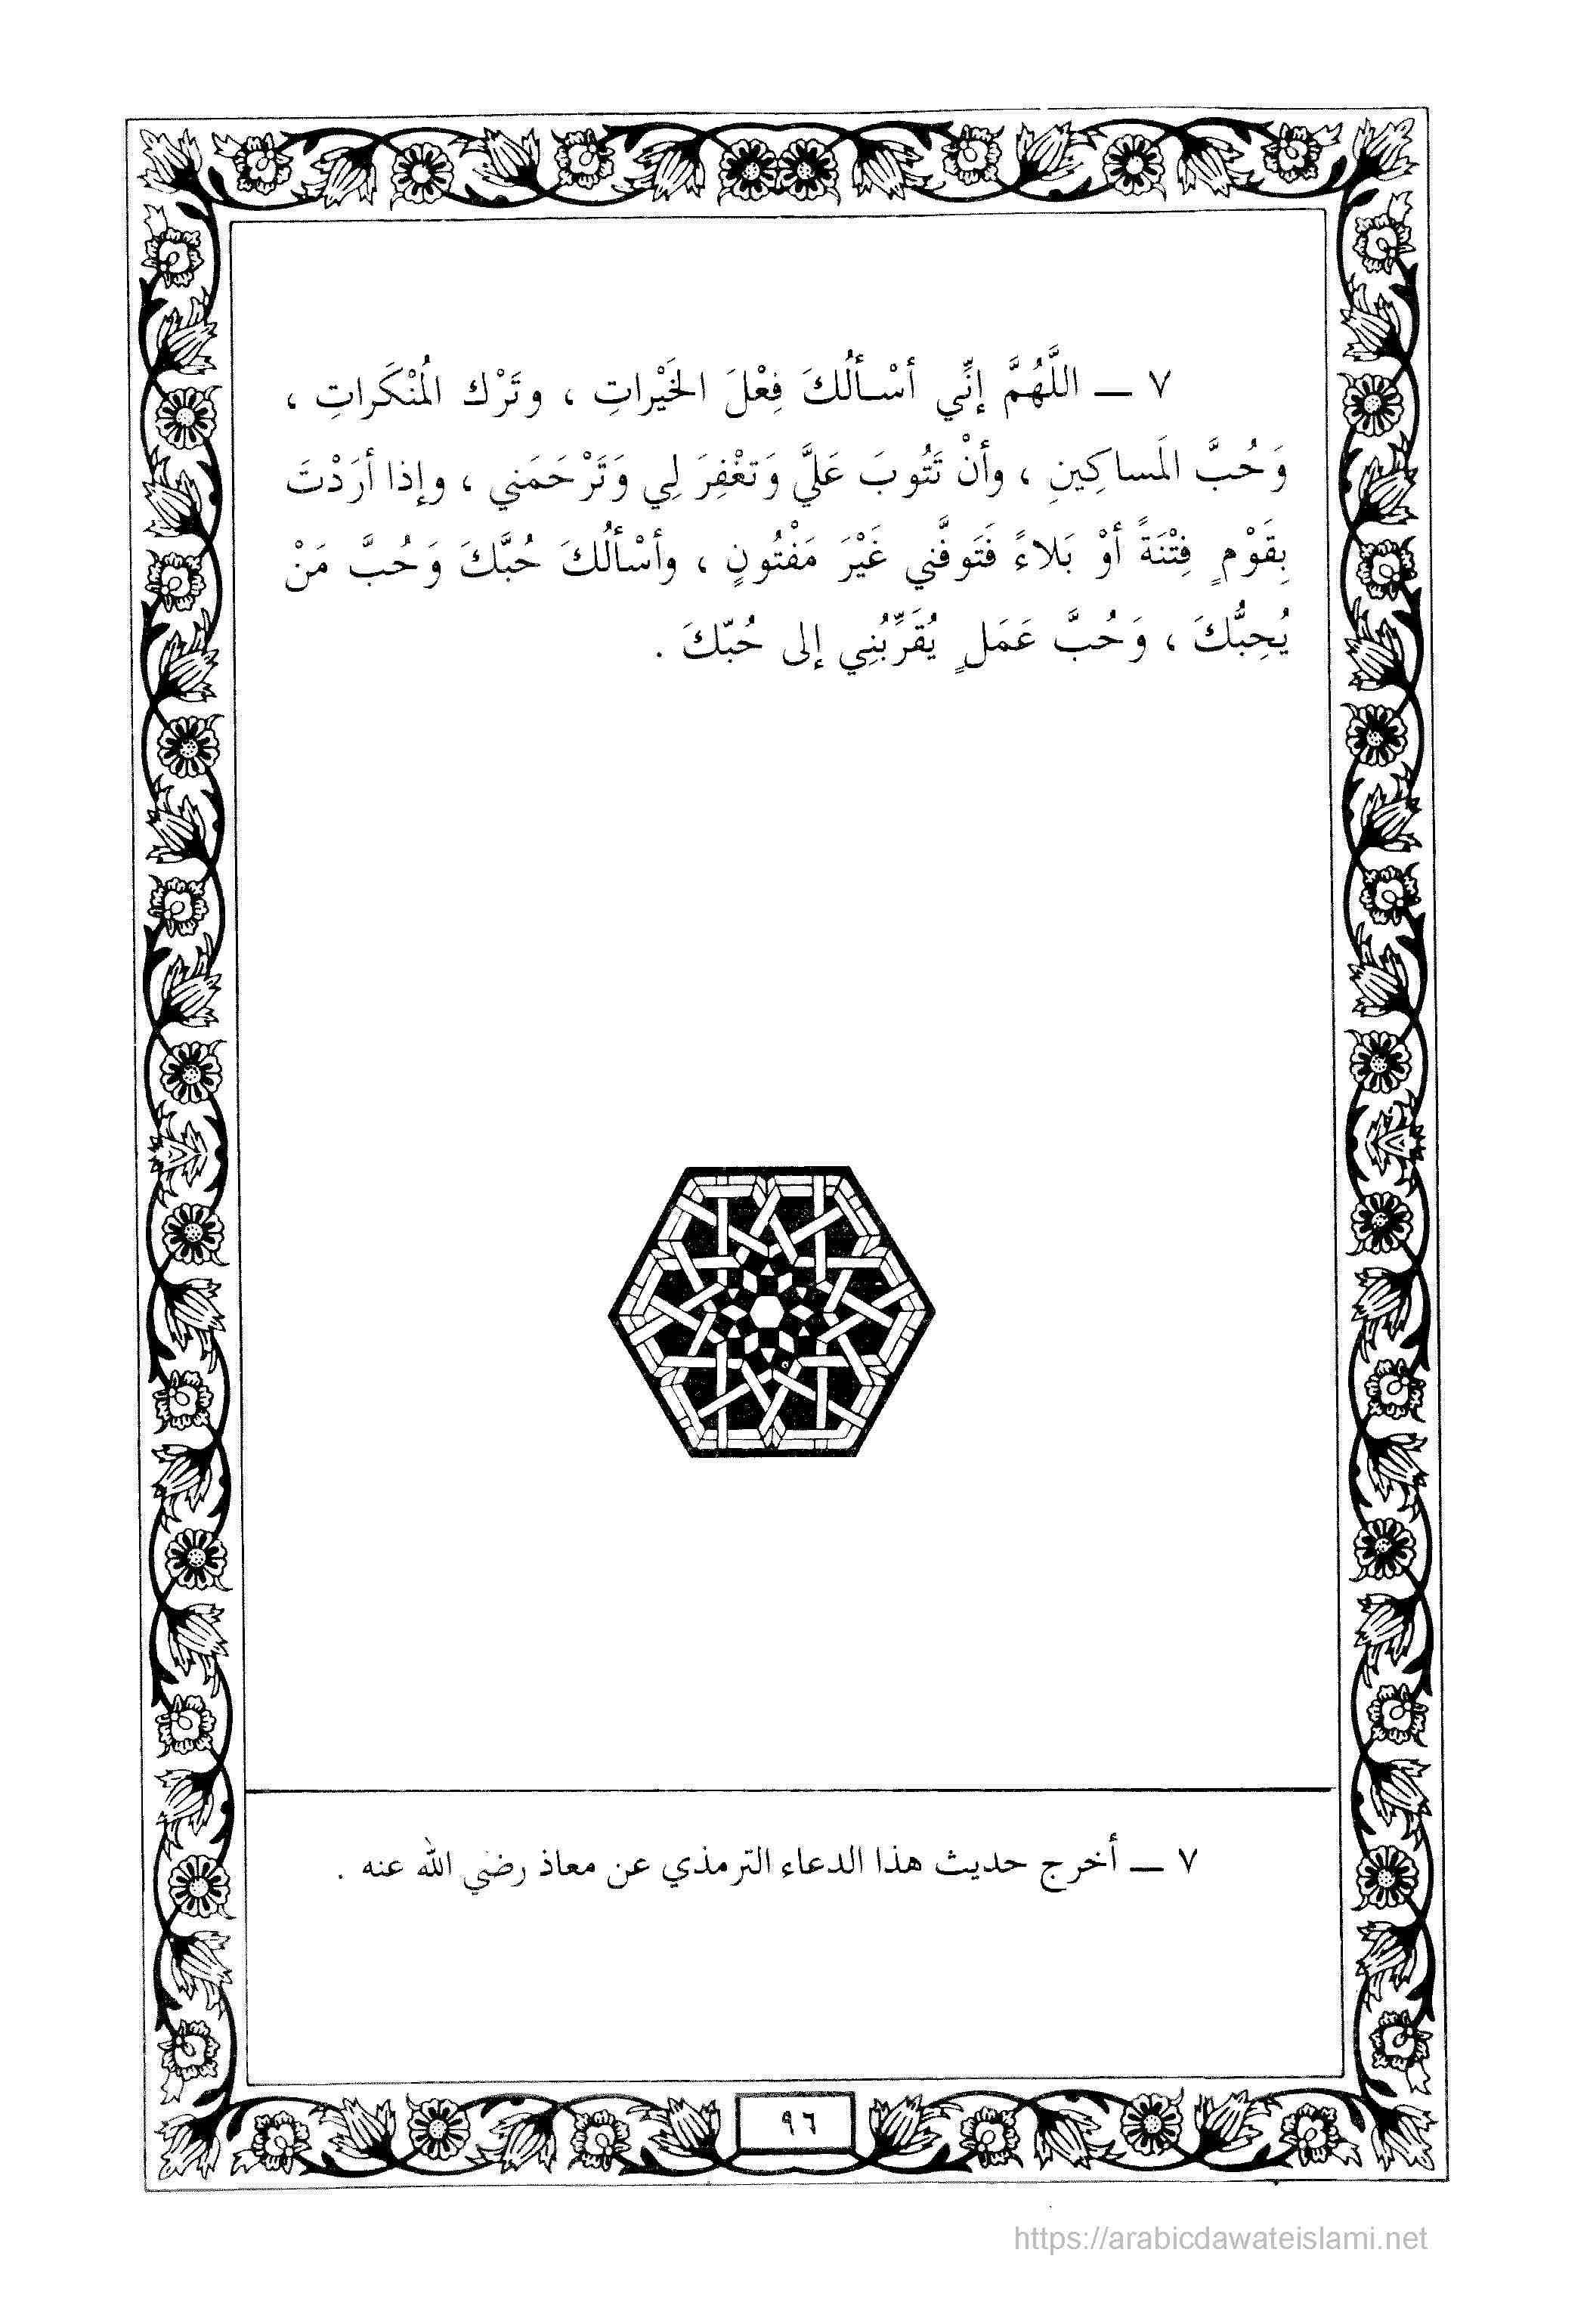 ٧ ــ اللَّهُمَّ إنِّي أسْـألُكَ فِعْلَ الخَيْراتِ ، وتَرْك المُنْكَراتِ ،
وَحُبَّ المَساكِينِ ، وأنْ تَتُوبَ عَليَّ وَتغْفِرَ لِي وَتَرْحَمَني ، وإذا أرَدْتَ
بِقَوْمٍ فِتْنَةً أوْ بَلاءً فَتَوفَّني غَيْرَ مَفْتُونٍ ، وأسْألُكَ حُبَّكَ وَحُبَّ مَنْ
يُحِبُّكَ ، وَحُبَّ عَمَلٍ يُقَرِّبُنِي إلى حُبّكَ .
٧ ــ أخرج حديث هذا الدعاء الترمذي عن معاذ رضي الله عنه .
٩٦
https://arabicdawateislami.net